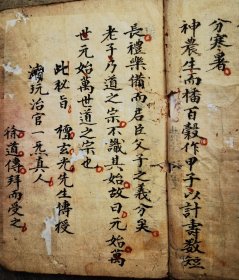 分寒暑
神農生而播百穀作甲子以計壽数短
長禮樂備而君臣父子之義分矣
老子乃道之宗不識其始故曰元始萬
世元始萬世道之宗也
此秘旨 穆玄光先生傳授
濟玩治官一炁真人
徐道傳拜而受之